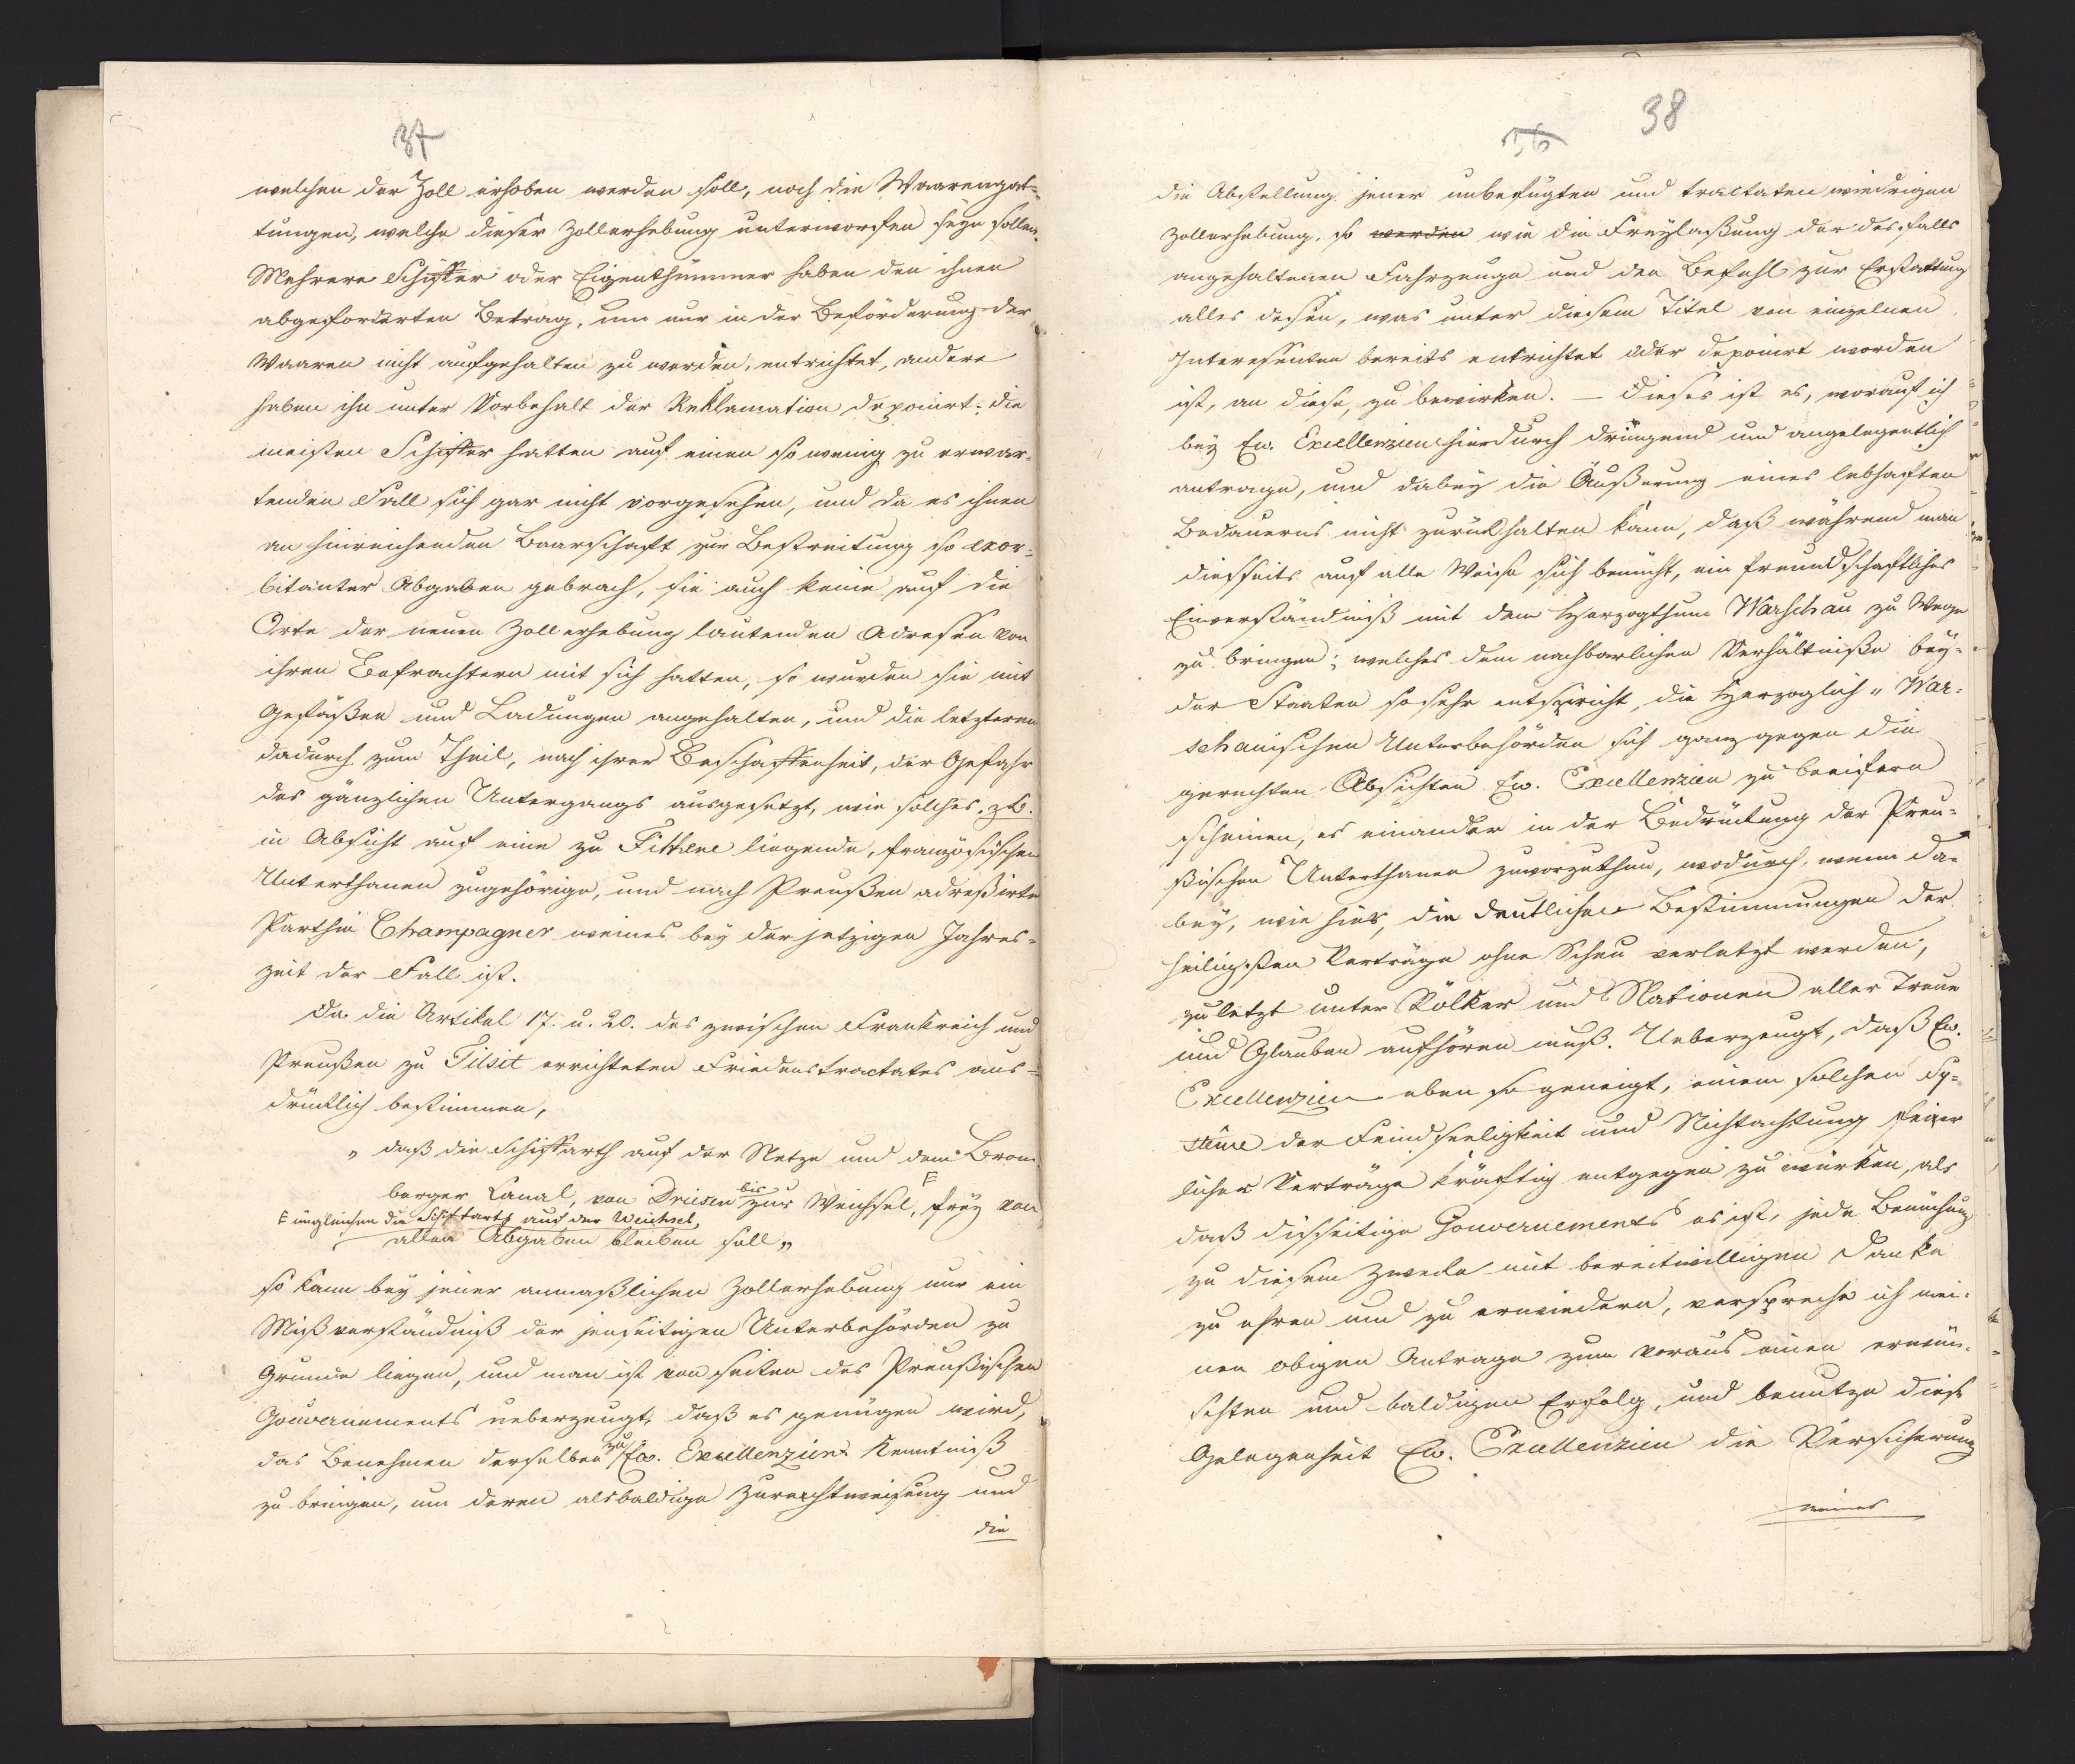 37
welchen der Zoll erhoben werden soll, noch die Waarengat=
tungen, welche dieser Zollerhebung unterworfen seyn sollen.
Mehrere Schiffer oder Eigenthümmer haben den ihnen
abgeforderten Betrag, um nur in der Beförderung der
Waaren nicht aufgehalten zu werden, entrichtet, andere
haben ihn unter Vorbehalt der Reklamation deponirt; die
meisten Schiffer hatten auf einen so wenig zu erwar=
tenden Fall sich gar nicht vorgesehen, und da es ihnen
an hinreichenden Baarschaft zur Bestreitung so exor=
bitanter Abgaben gebrach, sie auch keine auf die
Orte der neuen Zollerhebung lautenden Adressen von
ihren Befrachtern mit sich hatten, so wurden sie mit
Gefäßen und Ladungen angehalten, und die letzteren
dadurch zum Theil, nach ihrer Beschaffenheit, der Gefahr
des gänzlichen Untergangs ausgesetzt, wie solches z.B.
in Absicht auf eine zu Fitthene liegende, französischen
Unterthanen zugehörige, und nach Preußen adreßirte
Parthie Champagner weines bey der jetzigen Jahres=
zeit der Fall ist.
Da die Artikel 17. u. 20. des zwischen Frankreich und
Preußen zu Tilsit errichteten Friedenstractates aus=
drücklich bestimmen,
„ daß die Schiffarth auf der Netze und dem Brom
berger Canal, von Driesen bis zur Weichsel, F frey von
F ungleichen die Schiffarth auf der Weichsel,
allen Abgaben bleiben soll„
so kann bey jener anmaßlichen Zollerhebung nur ein
Mißverständniß der jenseitigen Unterbehörden zu
Grunde liegen, und man ist von seiten des Preußischen
Gouvernements ueberzeugt, daß es genügen wird,
das Benehmen derselben zu Ew. Excellenzien Kenntniß
zu bringen, um deren alsbaldige Zurechtweisung und
die
38
die Abstellung jener unbefugten und tractatenwiedrigen
Zollerhebung, so werden wie die Freylaßung der desfalls
angehaltenen Fahrzeuge und den Befehl zur Erstattung
alles dessen, was unter diesem Titel von einzelnen
Interessenten bereits entrichtet oder deponirt worden
ist, an diese, zu bewirken. – Dieses ist es, worauf ich
bey Ew. Excellenzien hierdurch dringend und angelegentlich
antrage, und dabey die Äußerung eines lebhaften
Bedauerns nicht zurückhalten kann, daß während man
diesseits auf alle Weise sich bemüht, ein freundschaftliches
Einverständniß mit dem Herzogthum Warschau zu Wege
zu bringen; welches dem nachbarlichen Verhältniße bey=
der Staaten so sehr entspricht, die Herzoglich „ War=
schauischen Unterbehörden sich ganz gegen die
gerechten Absichten Ew. Excellenzien zu beeifern
scheinen, es einander in der Bedrückung der Preu=
ßischen Unterthanen zuvorzuthun, wodurch, wenn da=
bey, wie hier, die deutlichen Bestimmungen der
heiligsten Verträge ohne Scheu verletzt werden,
zuletzt unter Völker und Nationen aller Treue
und Glauben aufhören muß. Ueberzeugt, daß Ew.
Excellenzien eben so geneigt, einem solchen Sy=
steme der Feindseeligkeit und Nichtachtung feier
licher Verträge kräftig entgegen zu würken, als
daß disseitige Gouvernements es ist, jede Bemühung
zu diesem Zwecke mit bereitwilligem Danke
zu ehren und zu erwiedern, verspreche ich mei=
nen obigen Antrage zum voraus einen erwün=
schten und baldigen Erfolg, und benutze diese
Gelegenheit Ew. Excellenzien die Versicherung
meiner